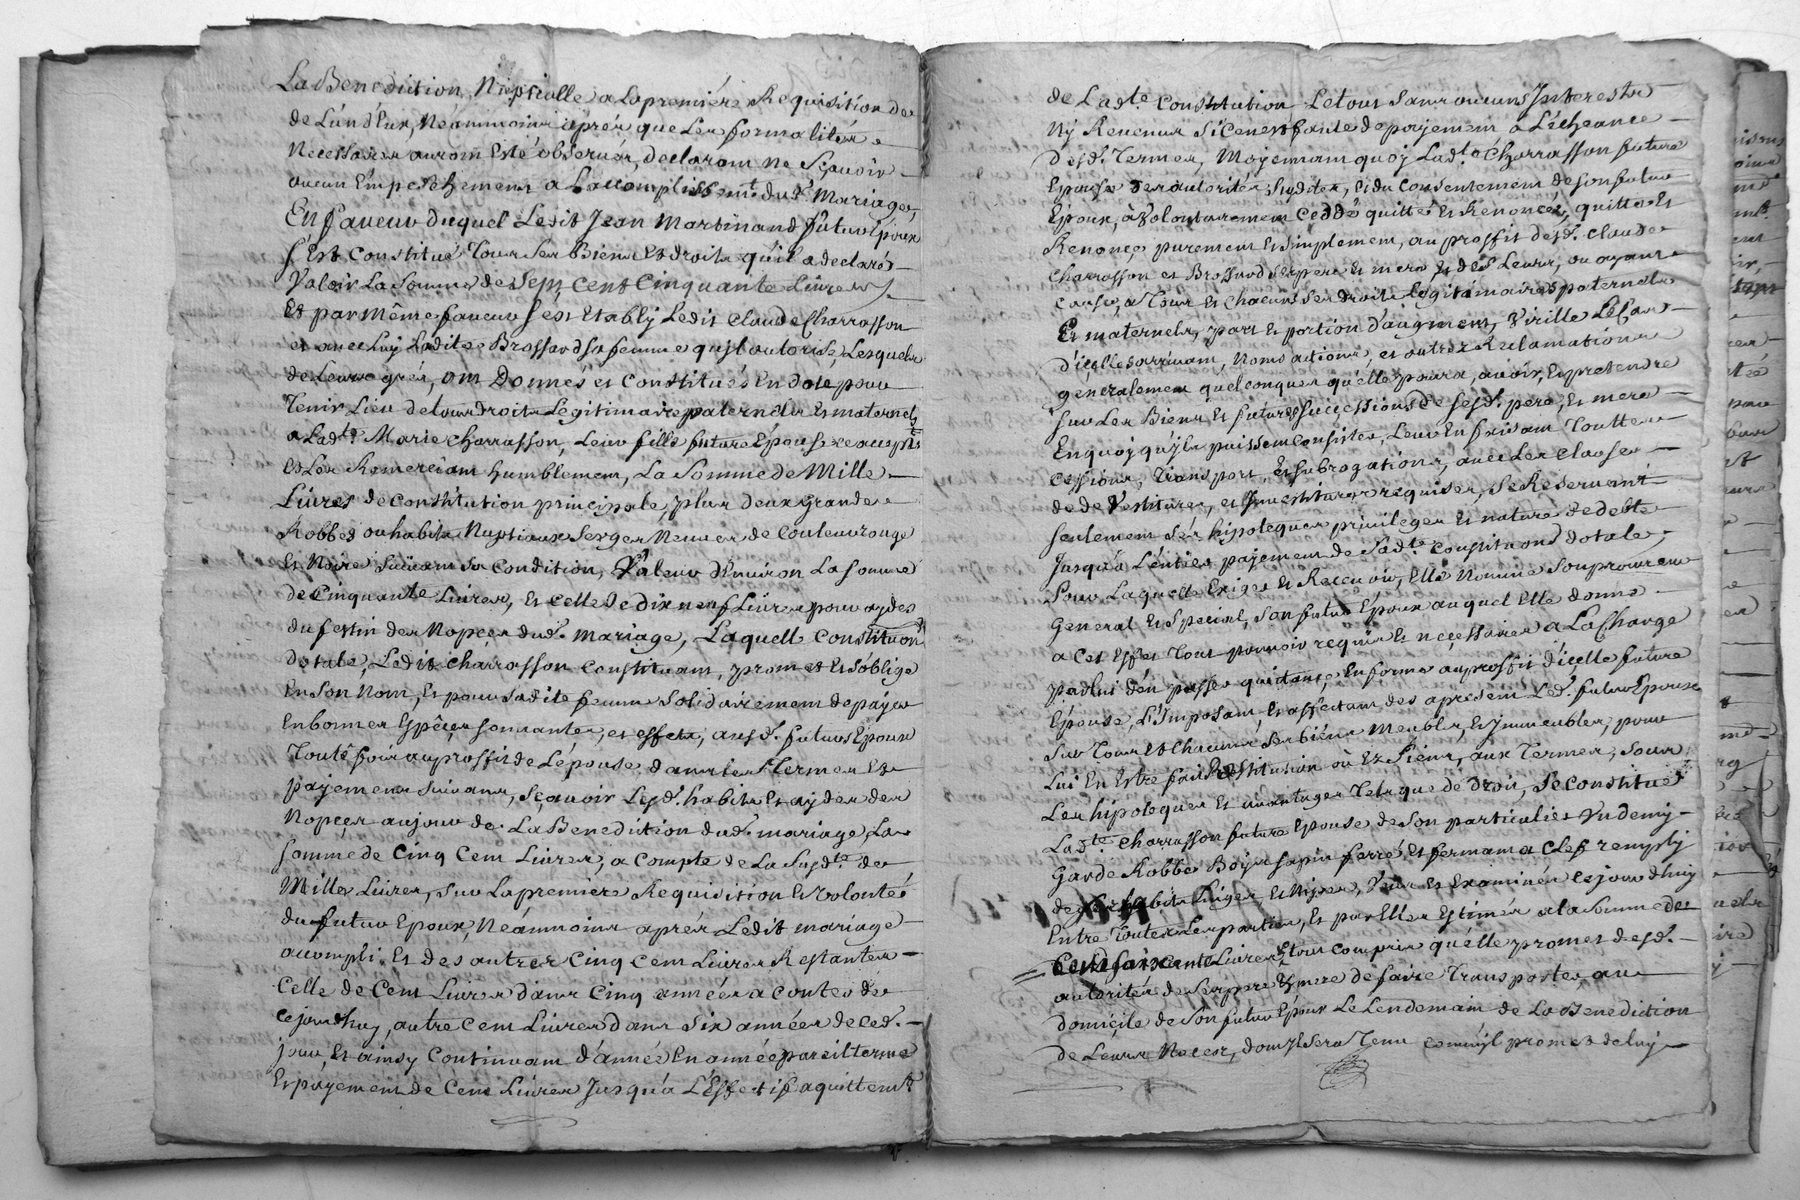 La Benediction Nuptialle a la premiére Requisition de
de L'un d'Eux, Néammoins aprés que Les formalités
Necessaires auront Esté observés, declarant ne Sçavoir
aucun Empechement a L'accomplissemt. dud. Mariage,
En faveur duquel Ledit Jean Martinand futur Epoux
s'Est Constitué Tous Ses Biens Et droits qu'il a declaré
Valoir La Somme de Sept Cent Cinquante Livres
Et par Même faveur s'est Etably Ledit Claude Charrasson
et avec Luy Ladite Brossard sa femme qu'il autorise, Lesquels
de Leurs grés, ont Donnés et Constitués En dote, pour
Tenir Lieu de tous droits Legitimaires paternels Et maternels
a Ladte. Marie Charrasson, Leur fille future Epouse
Et Les Remerciant humblement, La Somme de Mille
Livres de Constitution principale, plus deux grandes
Robbes ou habits Nuptiaux Serges Neuves de Couleur rouge
Et Noire Suivant Sa Condition, Valeur d'Environ La somme
de Cinquante Livres, Et Celle de dix neuf Livres pour aydes
du festin des Nopçes dud. Mariage, Laquelle Constituon
dotale, Ledit Charrasson Constituant, promet Et s'oblige
En Son Nom, Et pour Sadite femme Solidairement de payer
En bonnes Espêçes sonnantes, et effets, ausd. futurs Epoux
Toute fois au proffit de L'épouse dans les Termes Et
payements Suivans, Sçavoir Lesd. habits Et aydes des
Nopçes au jour de La Benediction dud. mariage, La
somme de Cinq Cent Livres, a Compte de La Susdte. de
Mille Livres, Sur La premiere Requisition Et Volonté
du futur Epoux, Néammoins aprés Ledit mariage
accompli. Et des autres Cinq Cent Livres Restantes
Celle de Cent Livres dans Cinq années a Conter de
ce jourdhuy, autre Cent Livres dans Six années de Ced.
jour, Et ainsy Continuant d'année En année pareil terme
Et payement de Cent Livres Jusqu'a L'Effectif aquittemt.
de Ladte. Constitution Le tout Sans aucuns Interests
Ny Revenus Si Ce n'est faute de payement a L'écheance
Desd. Termes, Moyennant quoy Ladte. Charrasson future
Epouse des autorités Susdites, Et du Consentement de Son futur
Epoux, a Volontairement Ceddé quitté Et Renoncé, quitte Et
Renonçe purement Et Simplement, au proffit desd. Claude
Charrasson et Brossard Ses pere Et mere Et des Leurs, ou ayant
cause, a Tous Et Chacuns Ses droits Legitimaires paternels
Et maternels, part Et portion d'augment, Virille Le Cas
d'içelle arrivant, Noms actions, et autres Reclamations
generalement quelconques qu'elle pourra, avoir, Et pretendre
Sur Les Biens Et futures Successions de Sesd. pere, Et mere
En quoy qu'ils puissent Consister, Leur En faisant Touttes
Cessions, Transport, Et Subrogations, avec Les Clauses
de de Vestitures, et Investitures requises, Se Reservant
Seulement Ses hipoteques privileges Et nature de debte
Jusqu'a L'entier payement de Sadte. Constituon dotale,
Pour Laquelle Exiger Et Recevoir, Elle Nomme Son procureur
General Et Special, Son futur Epoux auquel Elle donne
a Cet Effet Tout pouvoir requis Et neçessaires a La Charge
par lui d'en passer quittance En forme au proffit d'içelle future
Epouse, L'Imposant, Et affectant des apresent Led. futur Epoux
Sur Tous Et Chacuns Ses biens Meubles, Et Immeubles, pour
Lui En Estre fait Restitution où Et Siens, aux Termes, Sous
Les hipoteques Et avantages Tels que de droit, Se Constitue
Ladte. Charrasson future Epouse de Son particulier Un demy
Garde Robbe Bois sapin ferré, Et fermant a Clef remply
de Ses habits Linges, Et Nipes, Veus Et Examinés Cejourdhuy
Entre Toutes Les parties, Et par Elles Estimés a la Somme de
Livres, Et tout Compris qu'elle promet desd.
autorités de Ses pere Et mere de faire Transporter au
domiçile de Son futur Epoux Le Lendemain de La Benediction
de Leurs Noces, dont Il Sera Tenu Comm'yl promet de luy